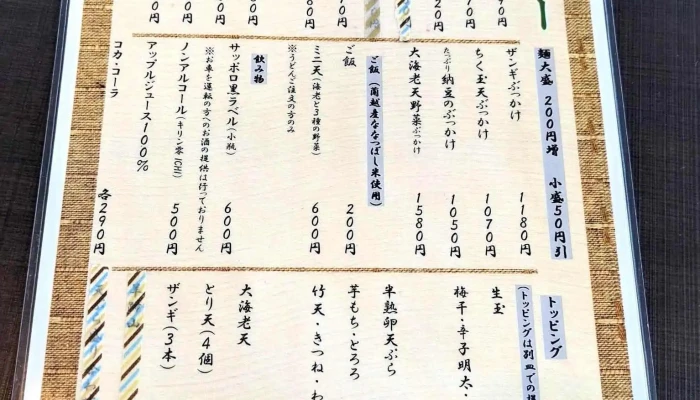 麺大盛 200円増 小盛50円引
ザンギぶっかけ 1180円
ちく玉天ぶっかけ 1070円
たっぷり納豆のぶっかけ 1050円
大海老天野菜ぶっかけ 1580円
ご飯(蘭越産ななつぼし米使用)
ご飯 200円
ミニ天(海老と3種の野菜) 600円
※うどんご注文の方のみ
飲み物
サッポロ黒ラベル(小瓶) 600円
※お車を運転の方へのお酒の提供は行っておりません
ノンアルコール(キリン零ICHI) 500円
アップルジュース100%
コカ・コーラ 各290円
トッピング
(トッピングは別皿での提
生玉
梅干・辛子明太・
半熟卵天ぷら
芋もち・とろろ
竹天・きつね・わ
大海老天
とり天(4個)
ザンギ(3本)